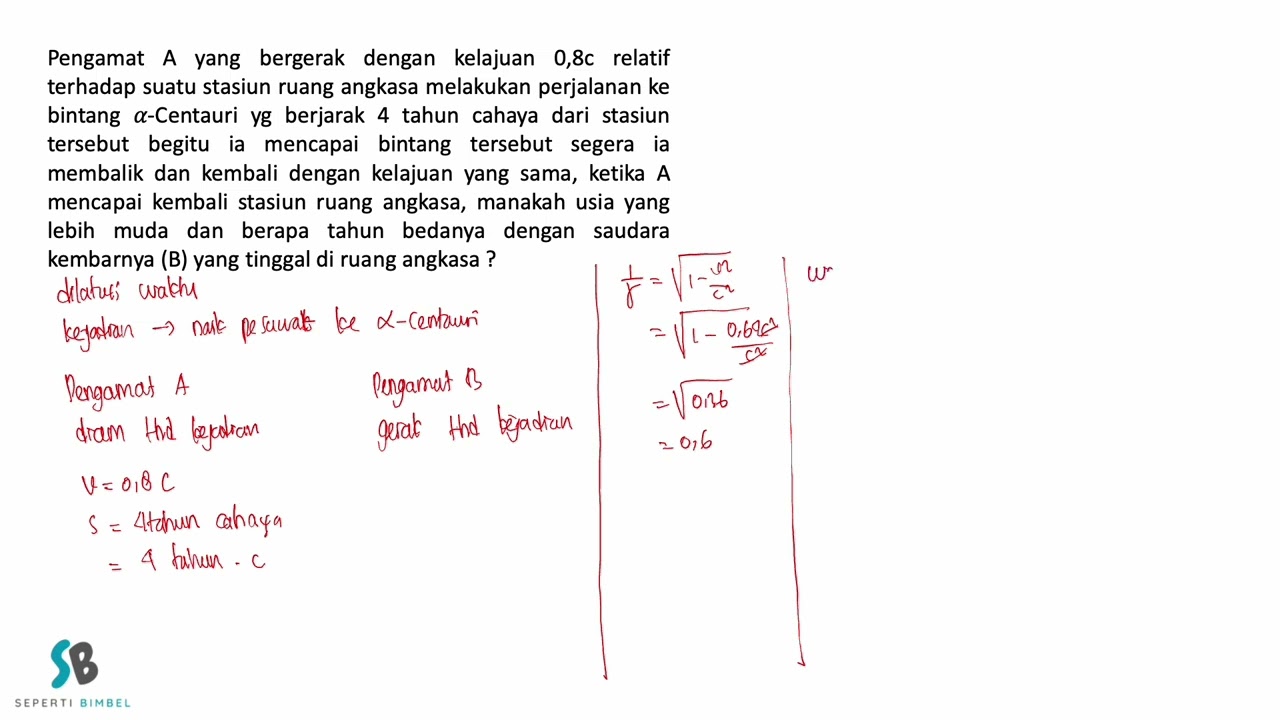 Pengamat A yang bergerak dengan kelajuan 0,8c relatif
terhadap suatu stasiun ruang angkasa melakukan perjalanan ke
bintang α-Centauri yg berjarak 4 tahun cahaya dari stasiun
tersebut begitu ia mencapai bintang tersebut segera ia
membalik dan kembali dengan kelajuan yang sama, ketika A
mencapai kembali stasiun ruang angkasa, manakah usia yang
lebih muda dan berapa tahun bedanya dengan saudara
kembarnya (B) yang tinggal di ruang angkasa ?
dilatasi waktu
kejadian → naik pesawat ke α-Centauri
Pengamat A
diam thd kejadian
v = 0,8 c
s = 4 tahun cahaya
= 4 tahun . c
Pengamat B
gerak thd kejadian
1/γ = √1 - v²/c²
= √1 - 0,64c²/c²
= √0,36
= 0,6
SB
SEPERTI BIMBEL